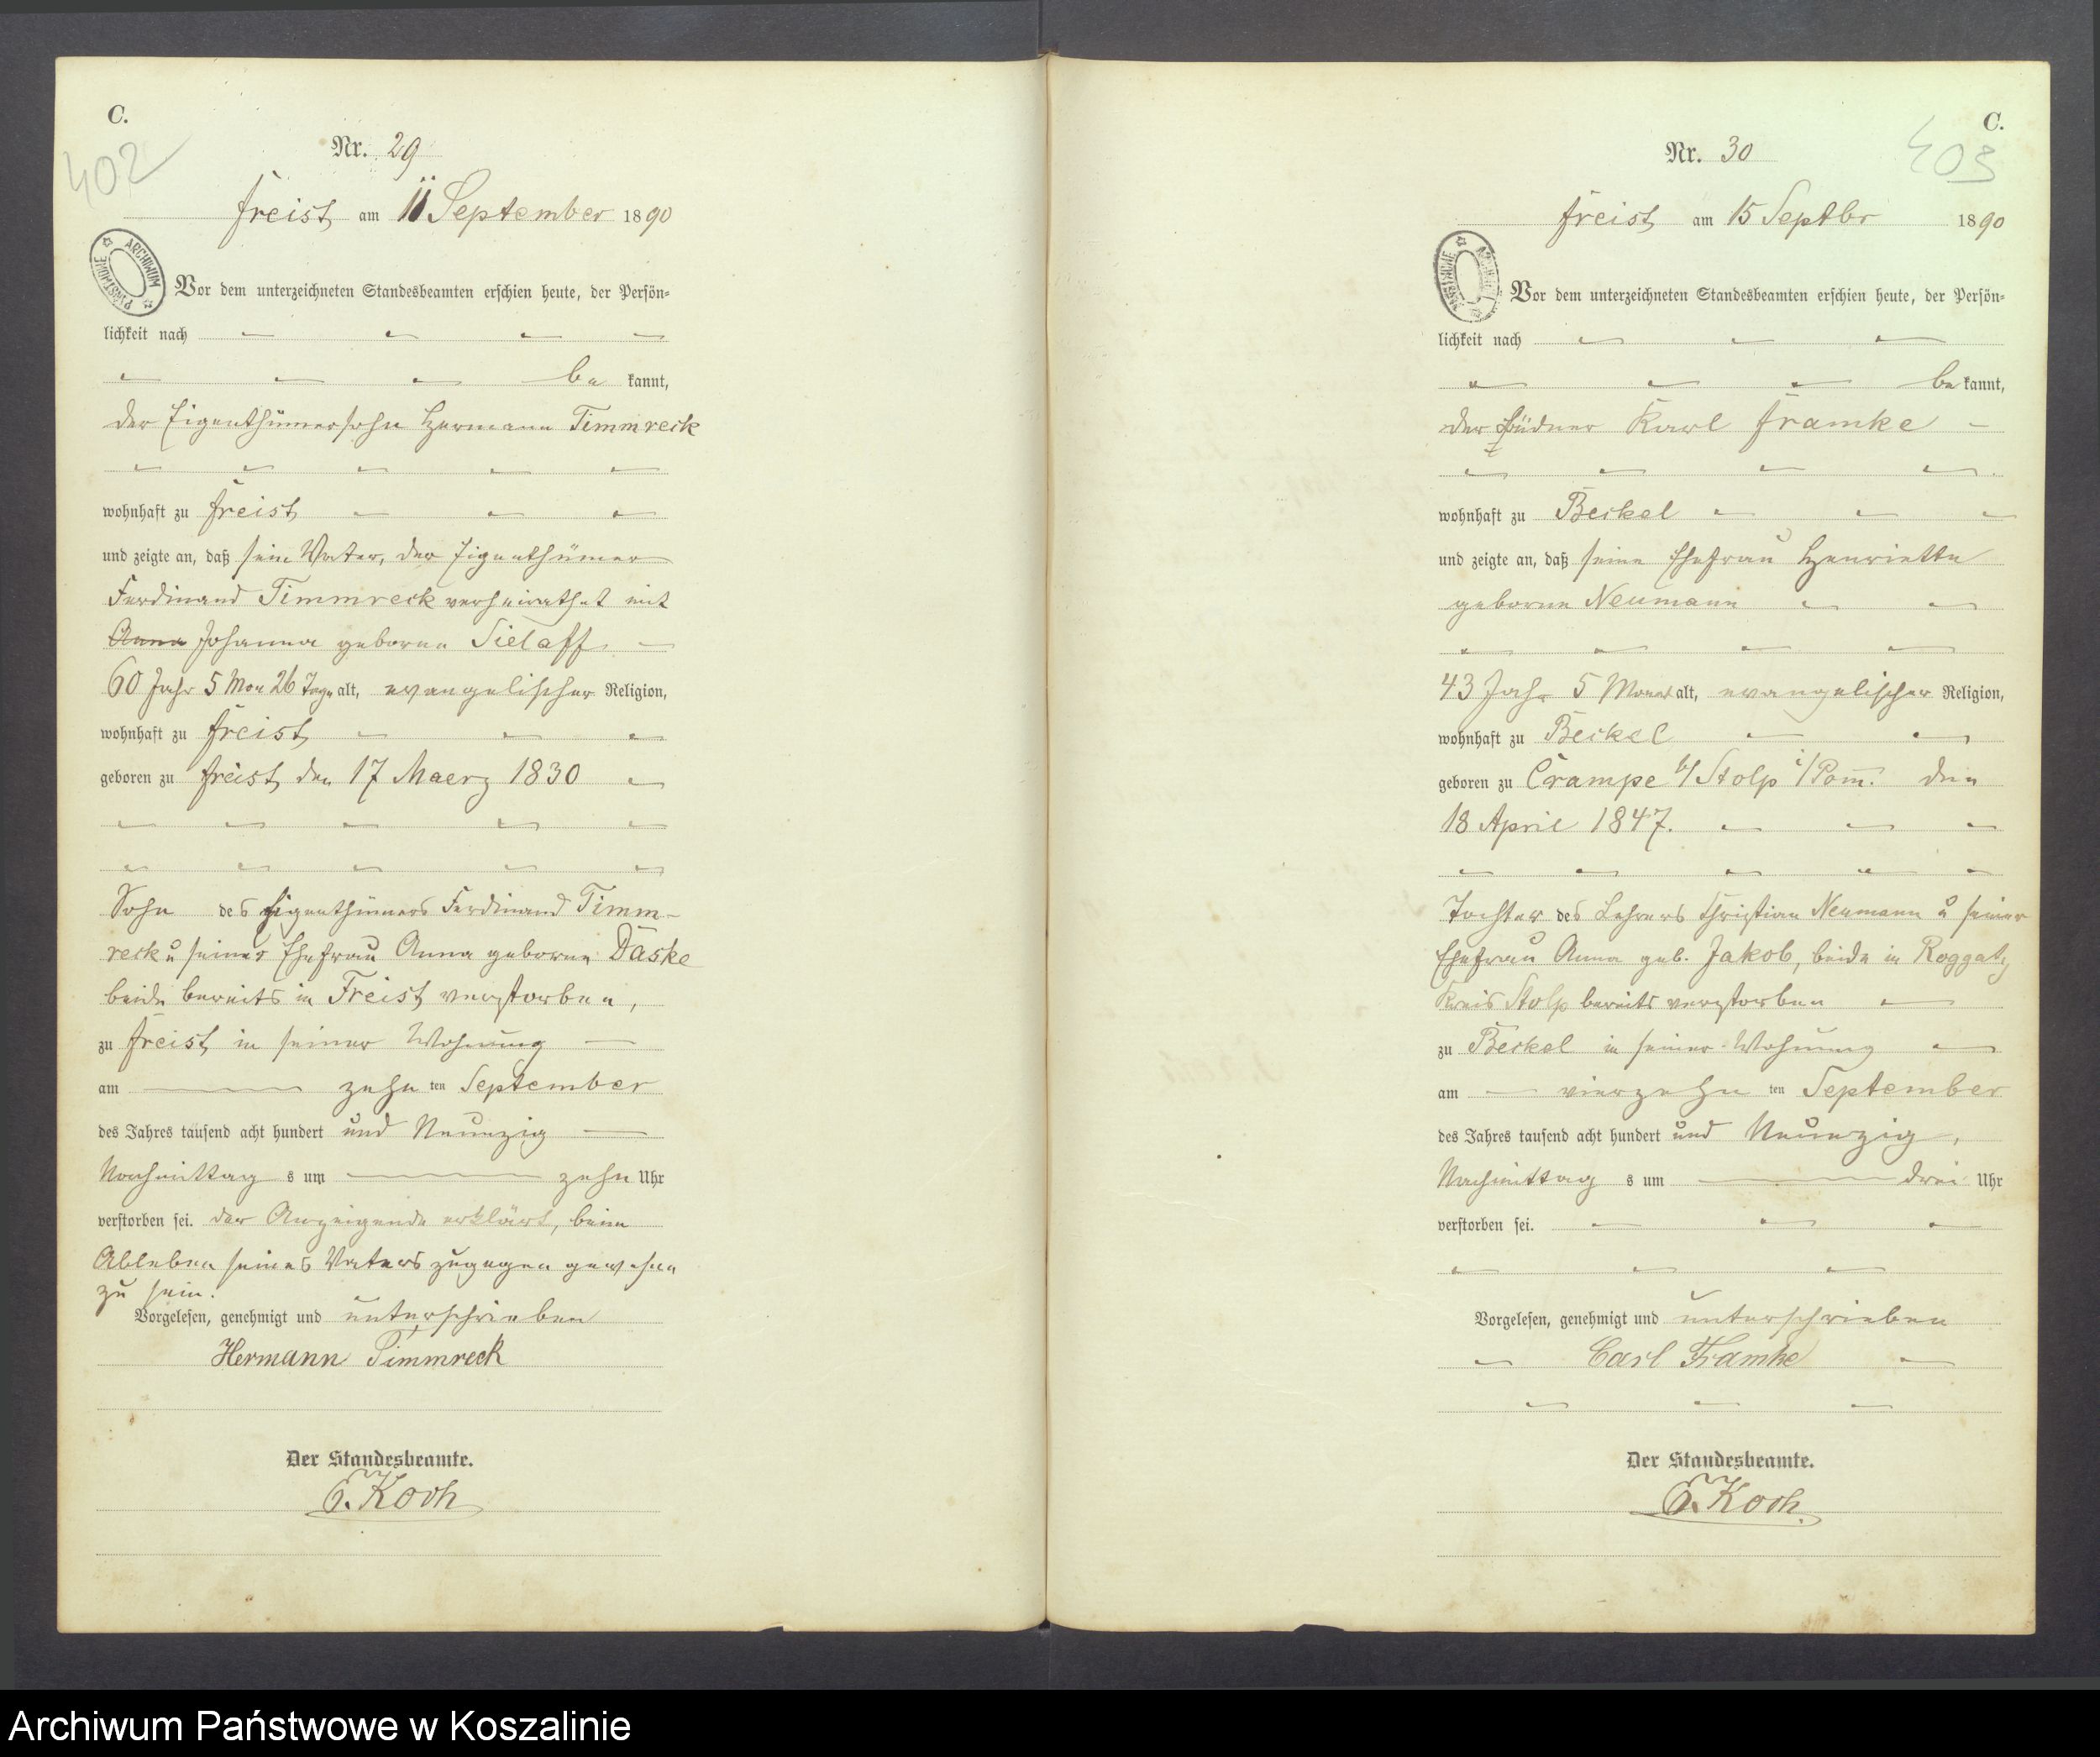 C.
402
Nr. 29
Freist am 11 September 1890
ARCHIWUM PAŃSTWOWE
Vor dem unterzeichneten Standesbeamten erschien heute, der Persön-
lichkeit nach
be kannt,
der Eigenthümersohn Hermann Timmreck
wohnhaft zu Freist
und zeigte an, daß sein Vater, der Eigenthümer
Ferdinand Timmreck verheirathet mit
Anna Johanna geborne Sielaff
60 Jahr 5 Mon 26 Tage alt, evangelischer Religion,
wohnhaft zu Freist
geboren zu Freist, den 17 Maerz 1830
Sohn des Eigenthümers Ferdinand Timm-
reck u seiner Ehefrau Anna geborne Däske
beide bereits in Freist verstorben,
zu Freist in seiner Wohnung
am zehn ten September
des Jahres tausend acht hundert und Neunzig
Nachmittag s um zehn Uhr
verstorben sei. der Anzeigende erklärt, beim
Ableben seines Vaters zugegen gewesen
zu sein.
Vorgelesen, genehmigt und unterschrieben
Hermann Timmreck
Der Standesbeamte.
E. Koch
C.
403
Nr. 30
Freist am 15 Septbr 1890
ARCHIWUM PAŃSTWOWE
Vor dem unterzeichneten Standesbeamten erschien heute, der Persön-
lichkeit nach
be kannt,
der Büdner Karl Framke
wohnhaft zu Beckel
und zeigte an, daß seine Ehefrau Henriette
geborne Neumann
43 Jahr 5 Monat alt, evangelischer Religion,
wohnhaft zu Beckel
geboren zu Crampe b/ Stolp i/Pom. den
18 April 1847.
Tochter des Lehrers Christian Neumann u seiner
Ehefrau Anna geb. Jakob, beide in Roggatz
Kreis Stolp bereits verstorben
zu Beckel in seiner Wohnung
am vierzehn ten September
des Jahres tausend acht hundert und Neunzig,
Nachmittag s um drei Uhr
verstorben sei.
Vorgelesen, genehmigt und unterschrieben
Carl Framke
Der Standesbeamte.
E. Koch.
Archiwum Państwowe w Koszalinie